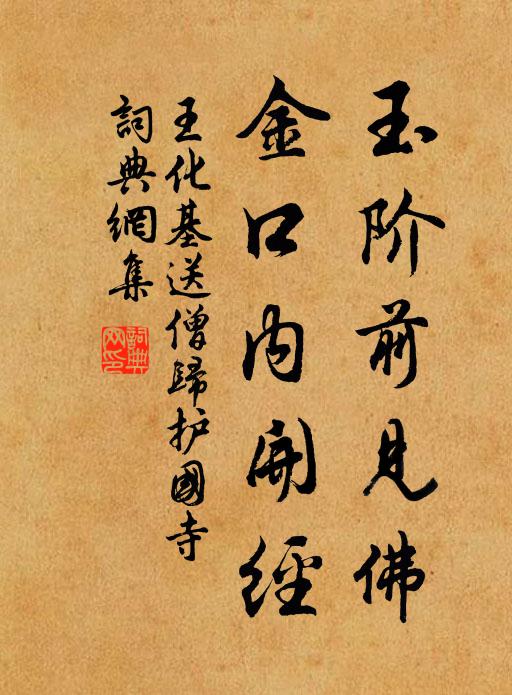 玉阶前见佛
金口内開經
王化基送僧歸护國寺
詞典網集
詞典
网印